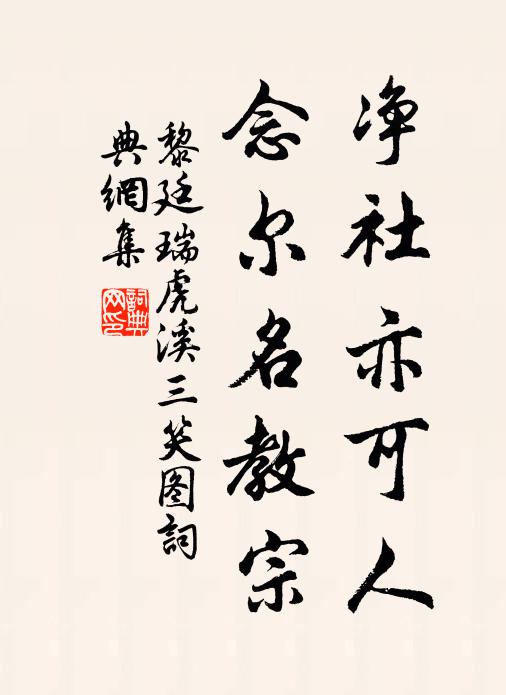 净社亦可人
念尔名教宗
黎廷瑞虎溪三笑图詞
典網集
詞典
网印